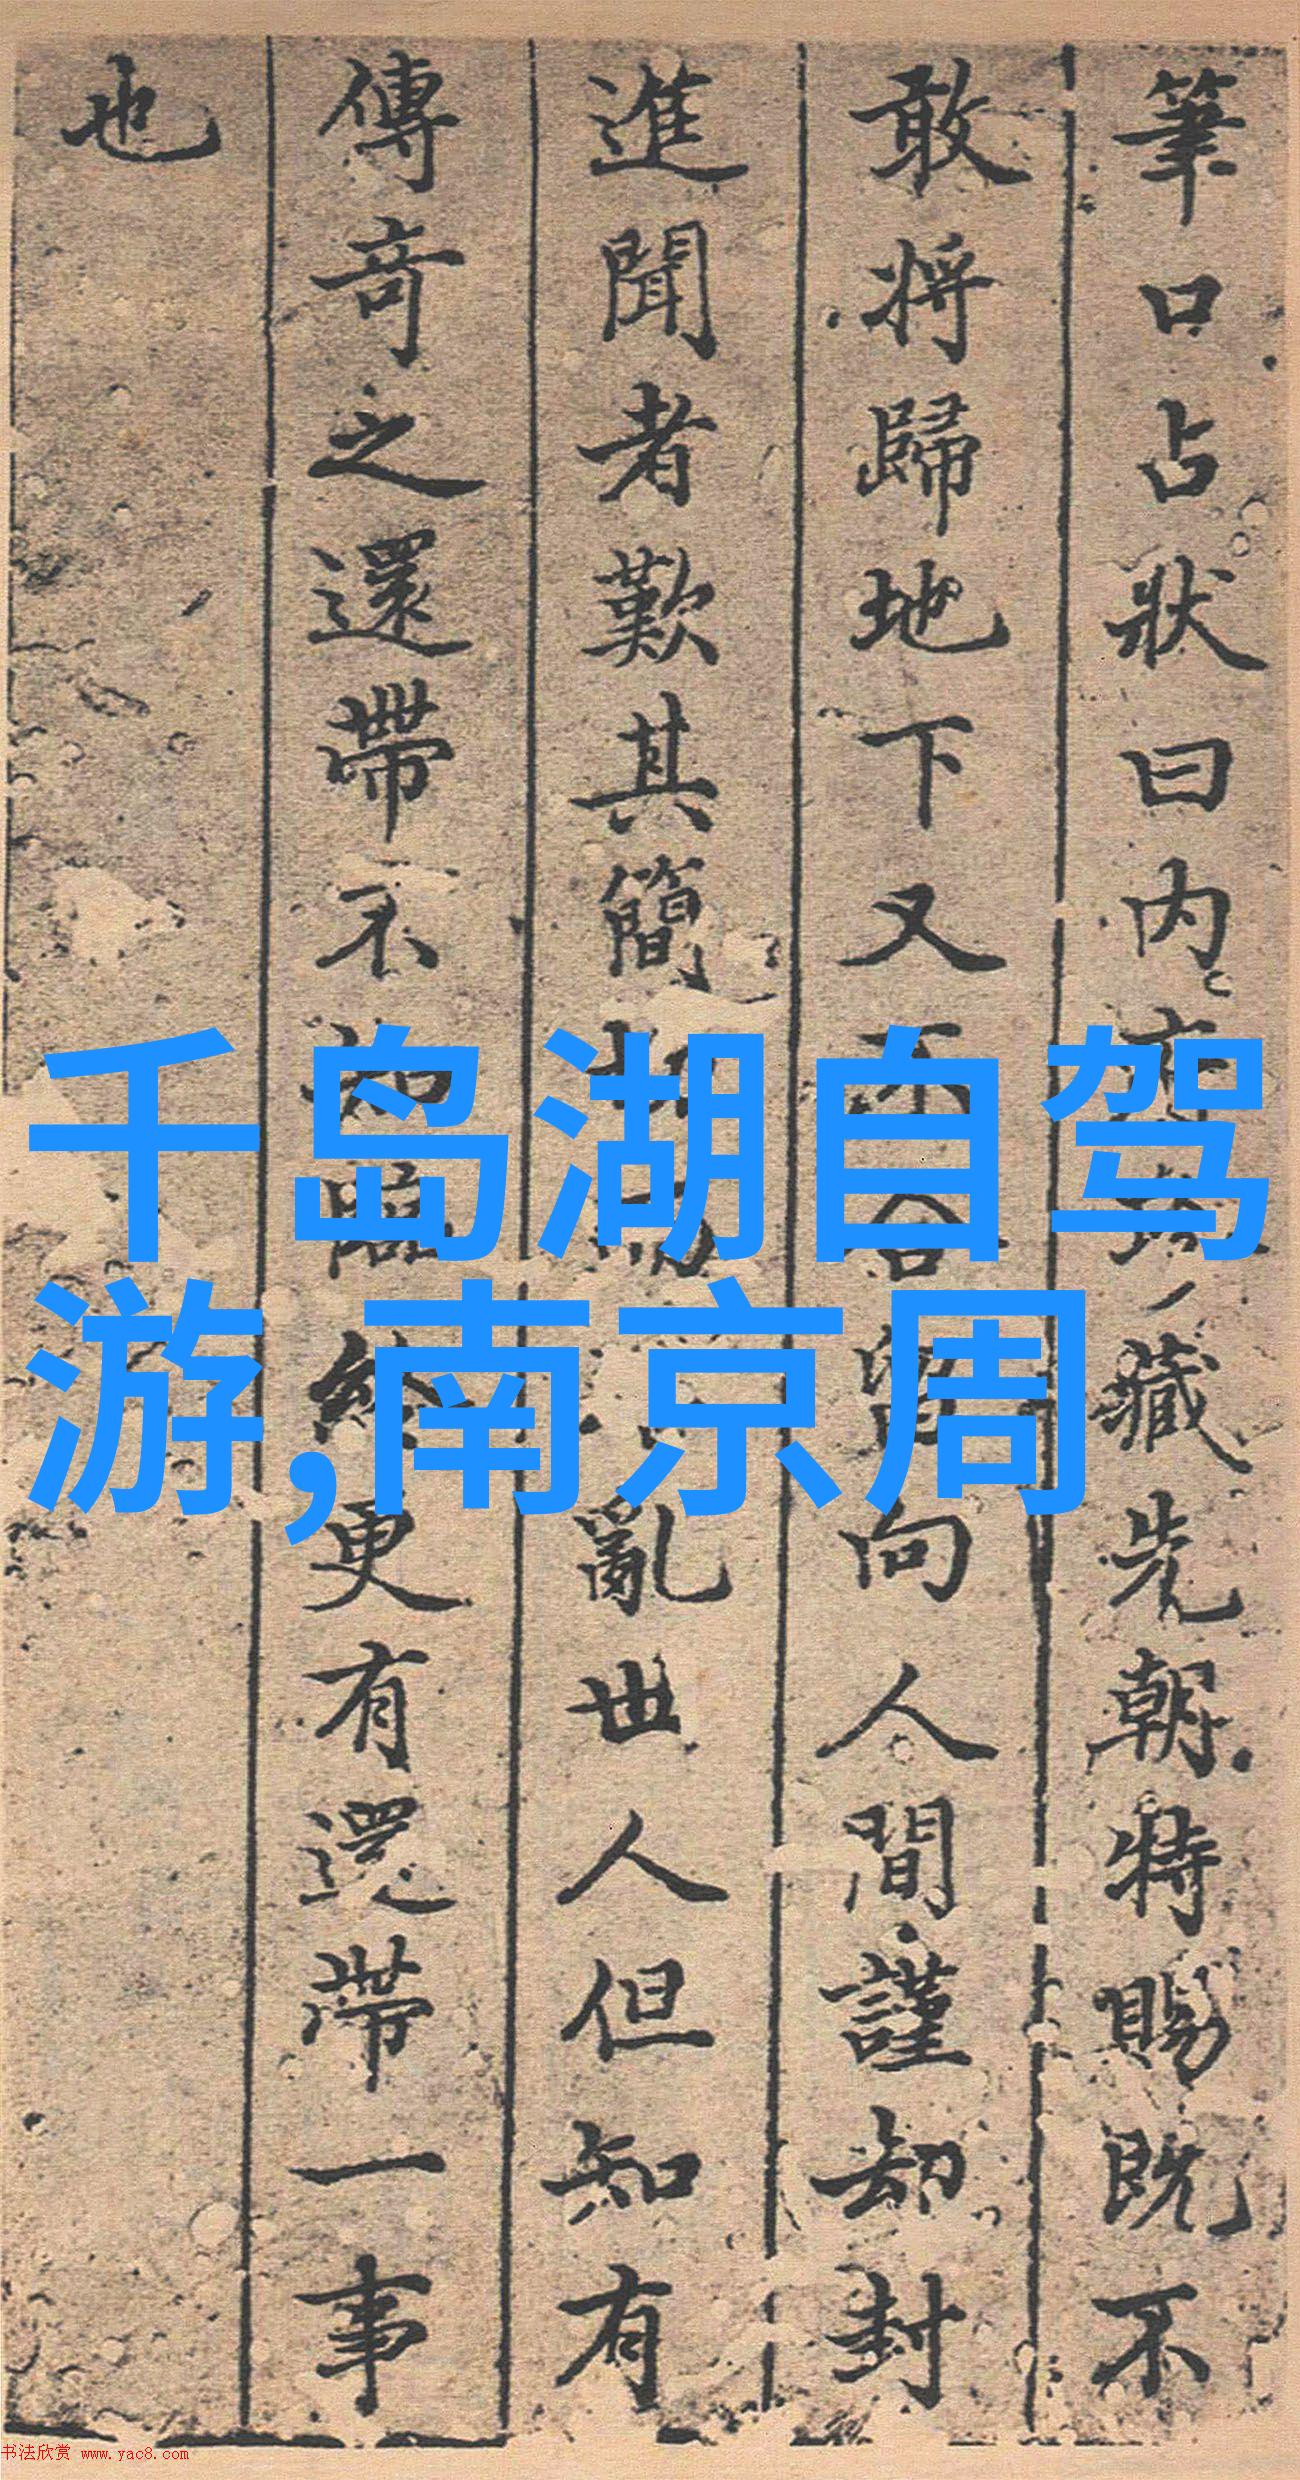 筆口占狀曰内
藏先朝特賜既不
敢将歸地下又不
向人間謹却封
進聞者歎其簡
亂世人但知有
傳奇之還帶不
更有還帶一事
也
千岛湖自驾
游,南京周
书法欣赏 www.yac8.com